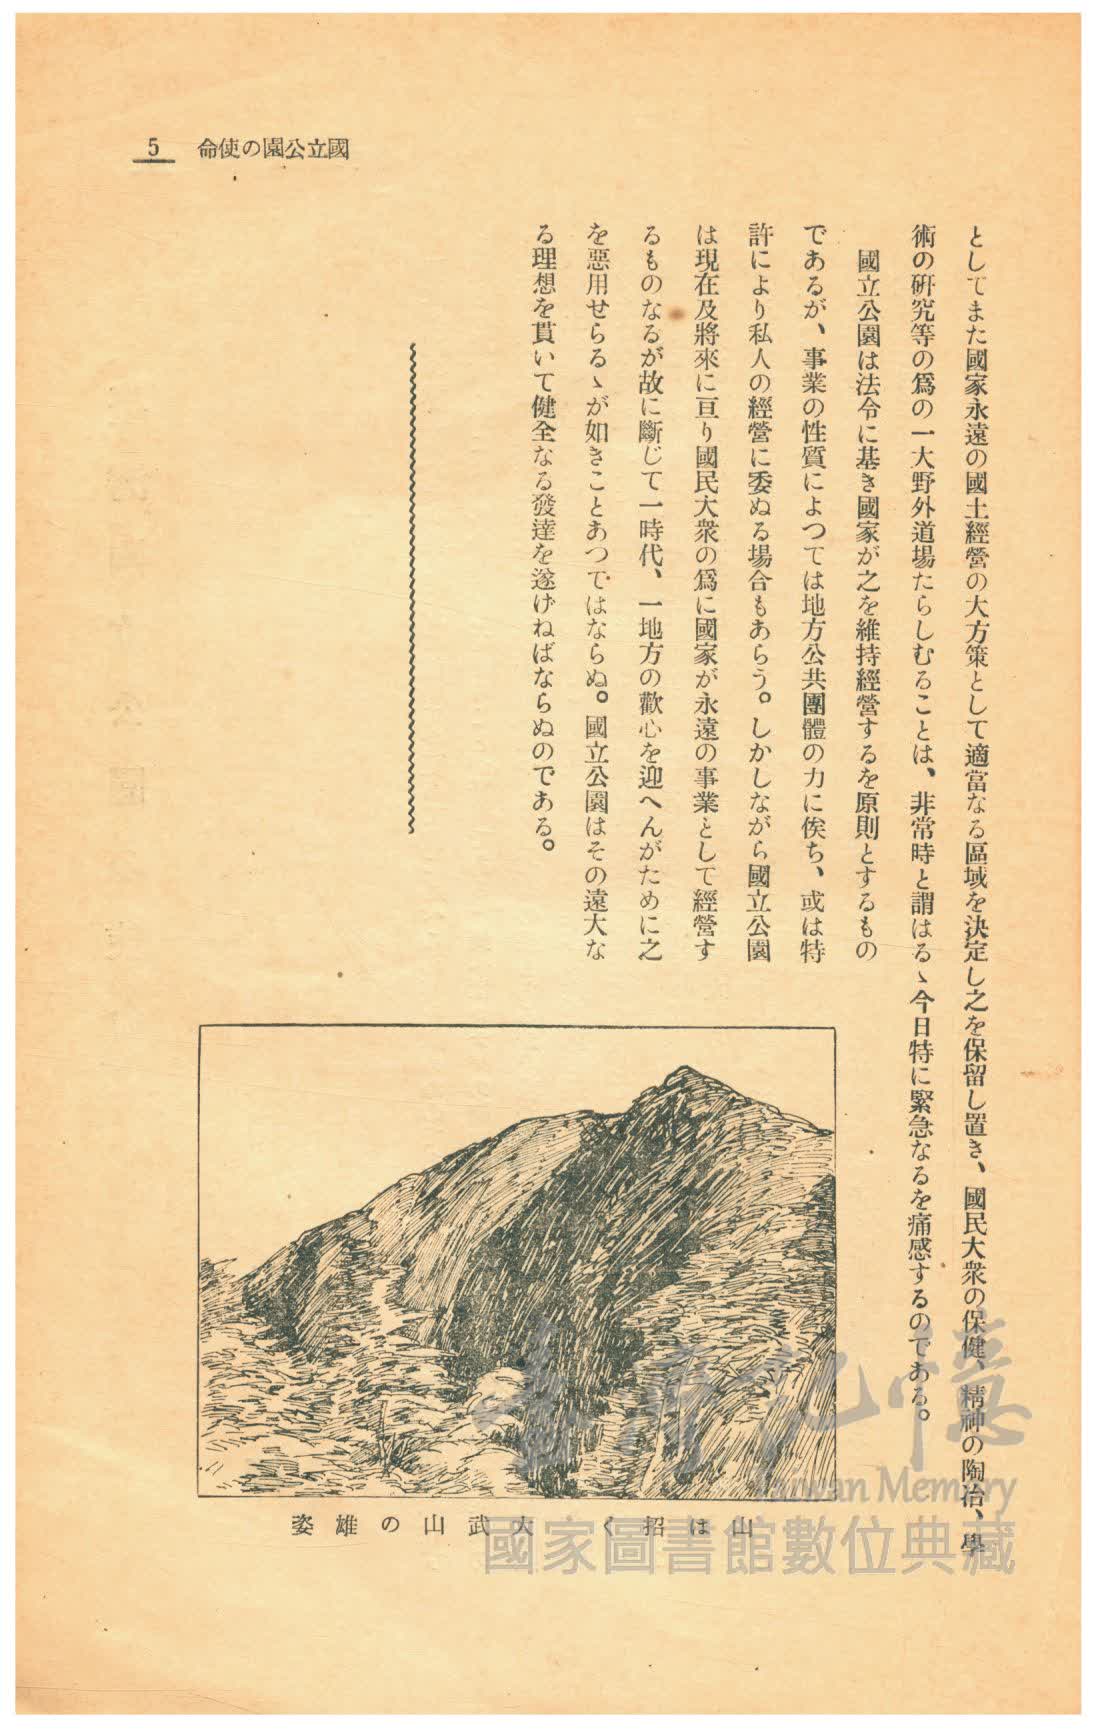 國立公園の使命
5
としてまた國家永遠の國土經營の大方策として適當なる區域を決定し之を保留し置き、國民大衆の保健、精神の陶冶、學
術の硏究等の爲の一大野外道場たらしむることは、非常時と謂はるゝ今日特に緊急なるを痛感するのである。
國立公園は法令に基き國家が之を維持經營するを原則とするもの
であるが、事業の性質によつては地方公共團體の力に俟ち、或は特
許により私人の經營に委ぬる場合もあらう。しかしながら國立公園
は現在及將來に亘り國民大衆の爲に國家が永遠の事業として經營す
るものなるが故に斷じて一時代、一地方の歡心を迎へんがために之
を惡用せらるゝが如きことあつてはならぬ。國立公園はその遠大な
る理想を貫いて健全なる發達を遂げねばならぬのである。
山は招く 大武山の雄姿
臺灣記憶
Taiwan Memory
國家圖書館數位典藏